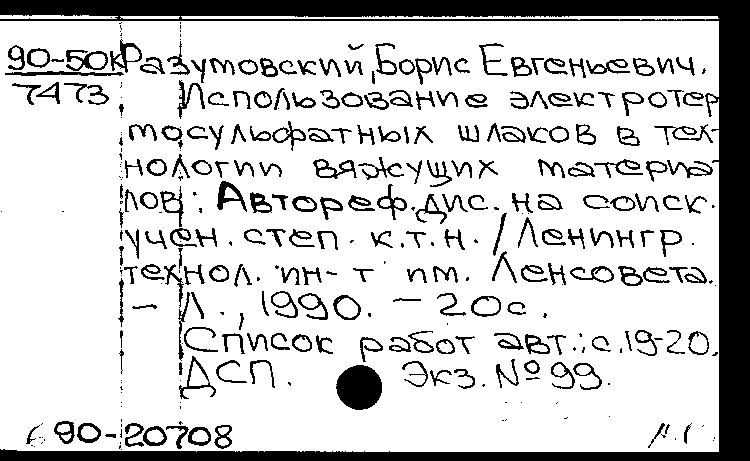 90-50к Разумовский, Борис Евгеньевич.
7473 Использование электротер-
мосульфатных шлаков в тех-
нологии вяжущих материа-
лов: Автореф. дис. на соиск.
учен. степ. к.т.н. / Ленингр.
технол. ин-т им. Ленсовета.
— Л., 1990. — 20 с.
Список работ авт.: с. 19-20.
ДСП. Экз. № 99.
90-20708